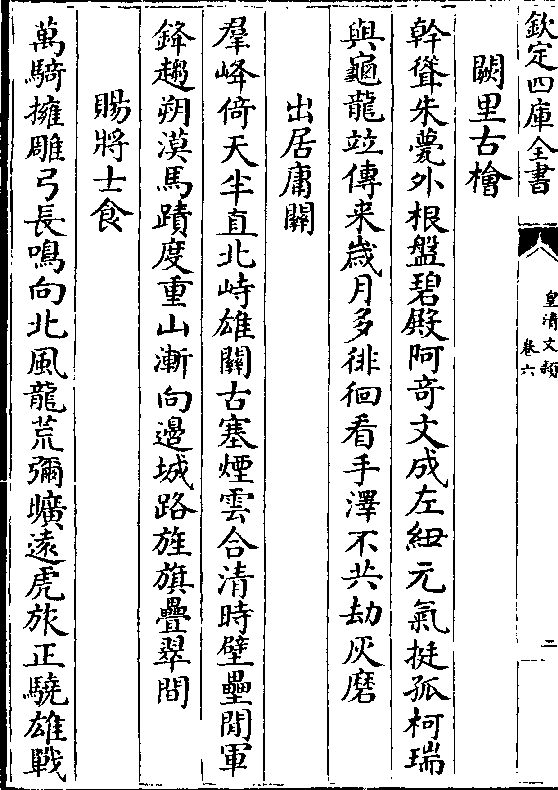 欽定四庫全書
皇清文穎
卷六
二
闕里古檜
幹聳朱甍外根盤碧殿阿竒文成左紐元氣挺孤柯瑞
與龜龍竝傳来嵗月多徘徊看手澤不共劫灰磨
出居庸關
羣峰倚天半直北峙雄關古塞煙雲合清時壁壘閒軍
鋒趨朔漠馬蹟度重山漸向邉城路旌旗疊翠間
賜將士食
萬騎擁雕弓長鳴向北風龍荒彌曠遠虎旅正驍雄戰